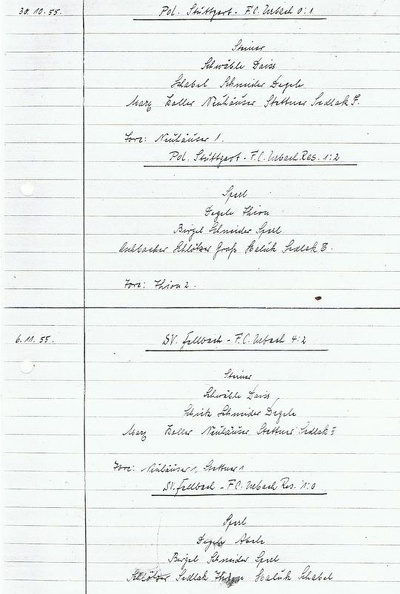 30.10.55. Pol. Stuttgart - F.C. Urbach 0:1
Steiner
Schwäble Daiss
Schabel Schneider Degele
Marz Haller Neuhäuser Stettner Sedlak
Tore: Neuhäuser 1.
Pol. Stuttgart - F.C. Urbach Res. 1:2
Sperl
Degele Thira
Birgel Schneider Sperl
Schlötzer Graf Haluk Sedlak
Tore: Thira 2.
6.11.55. SV. Fellbach - F.C. Urbach 4:2
Steiner
Schwäble Daiss
Schneider Degele
Marz Haller Neuhäuser Stettner Sedlak
Tore: Neuhäuser 1, Stettner 1
SV. Fellbach - F.C. Urbach Res. 1:0
Sperl
Degele Abele
Birgel Schneider Sperl
Schlötzer Sedlak Haluk Schabel